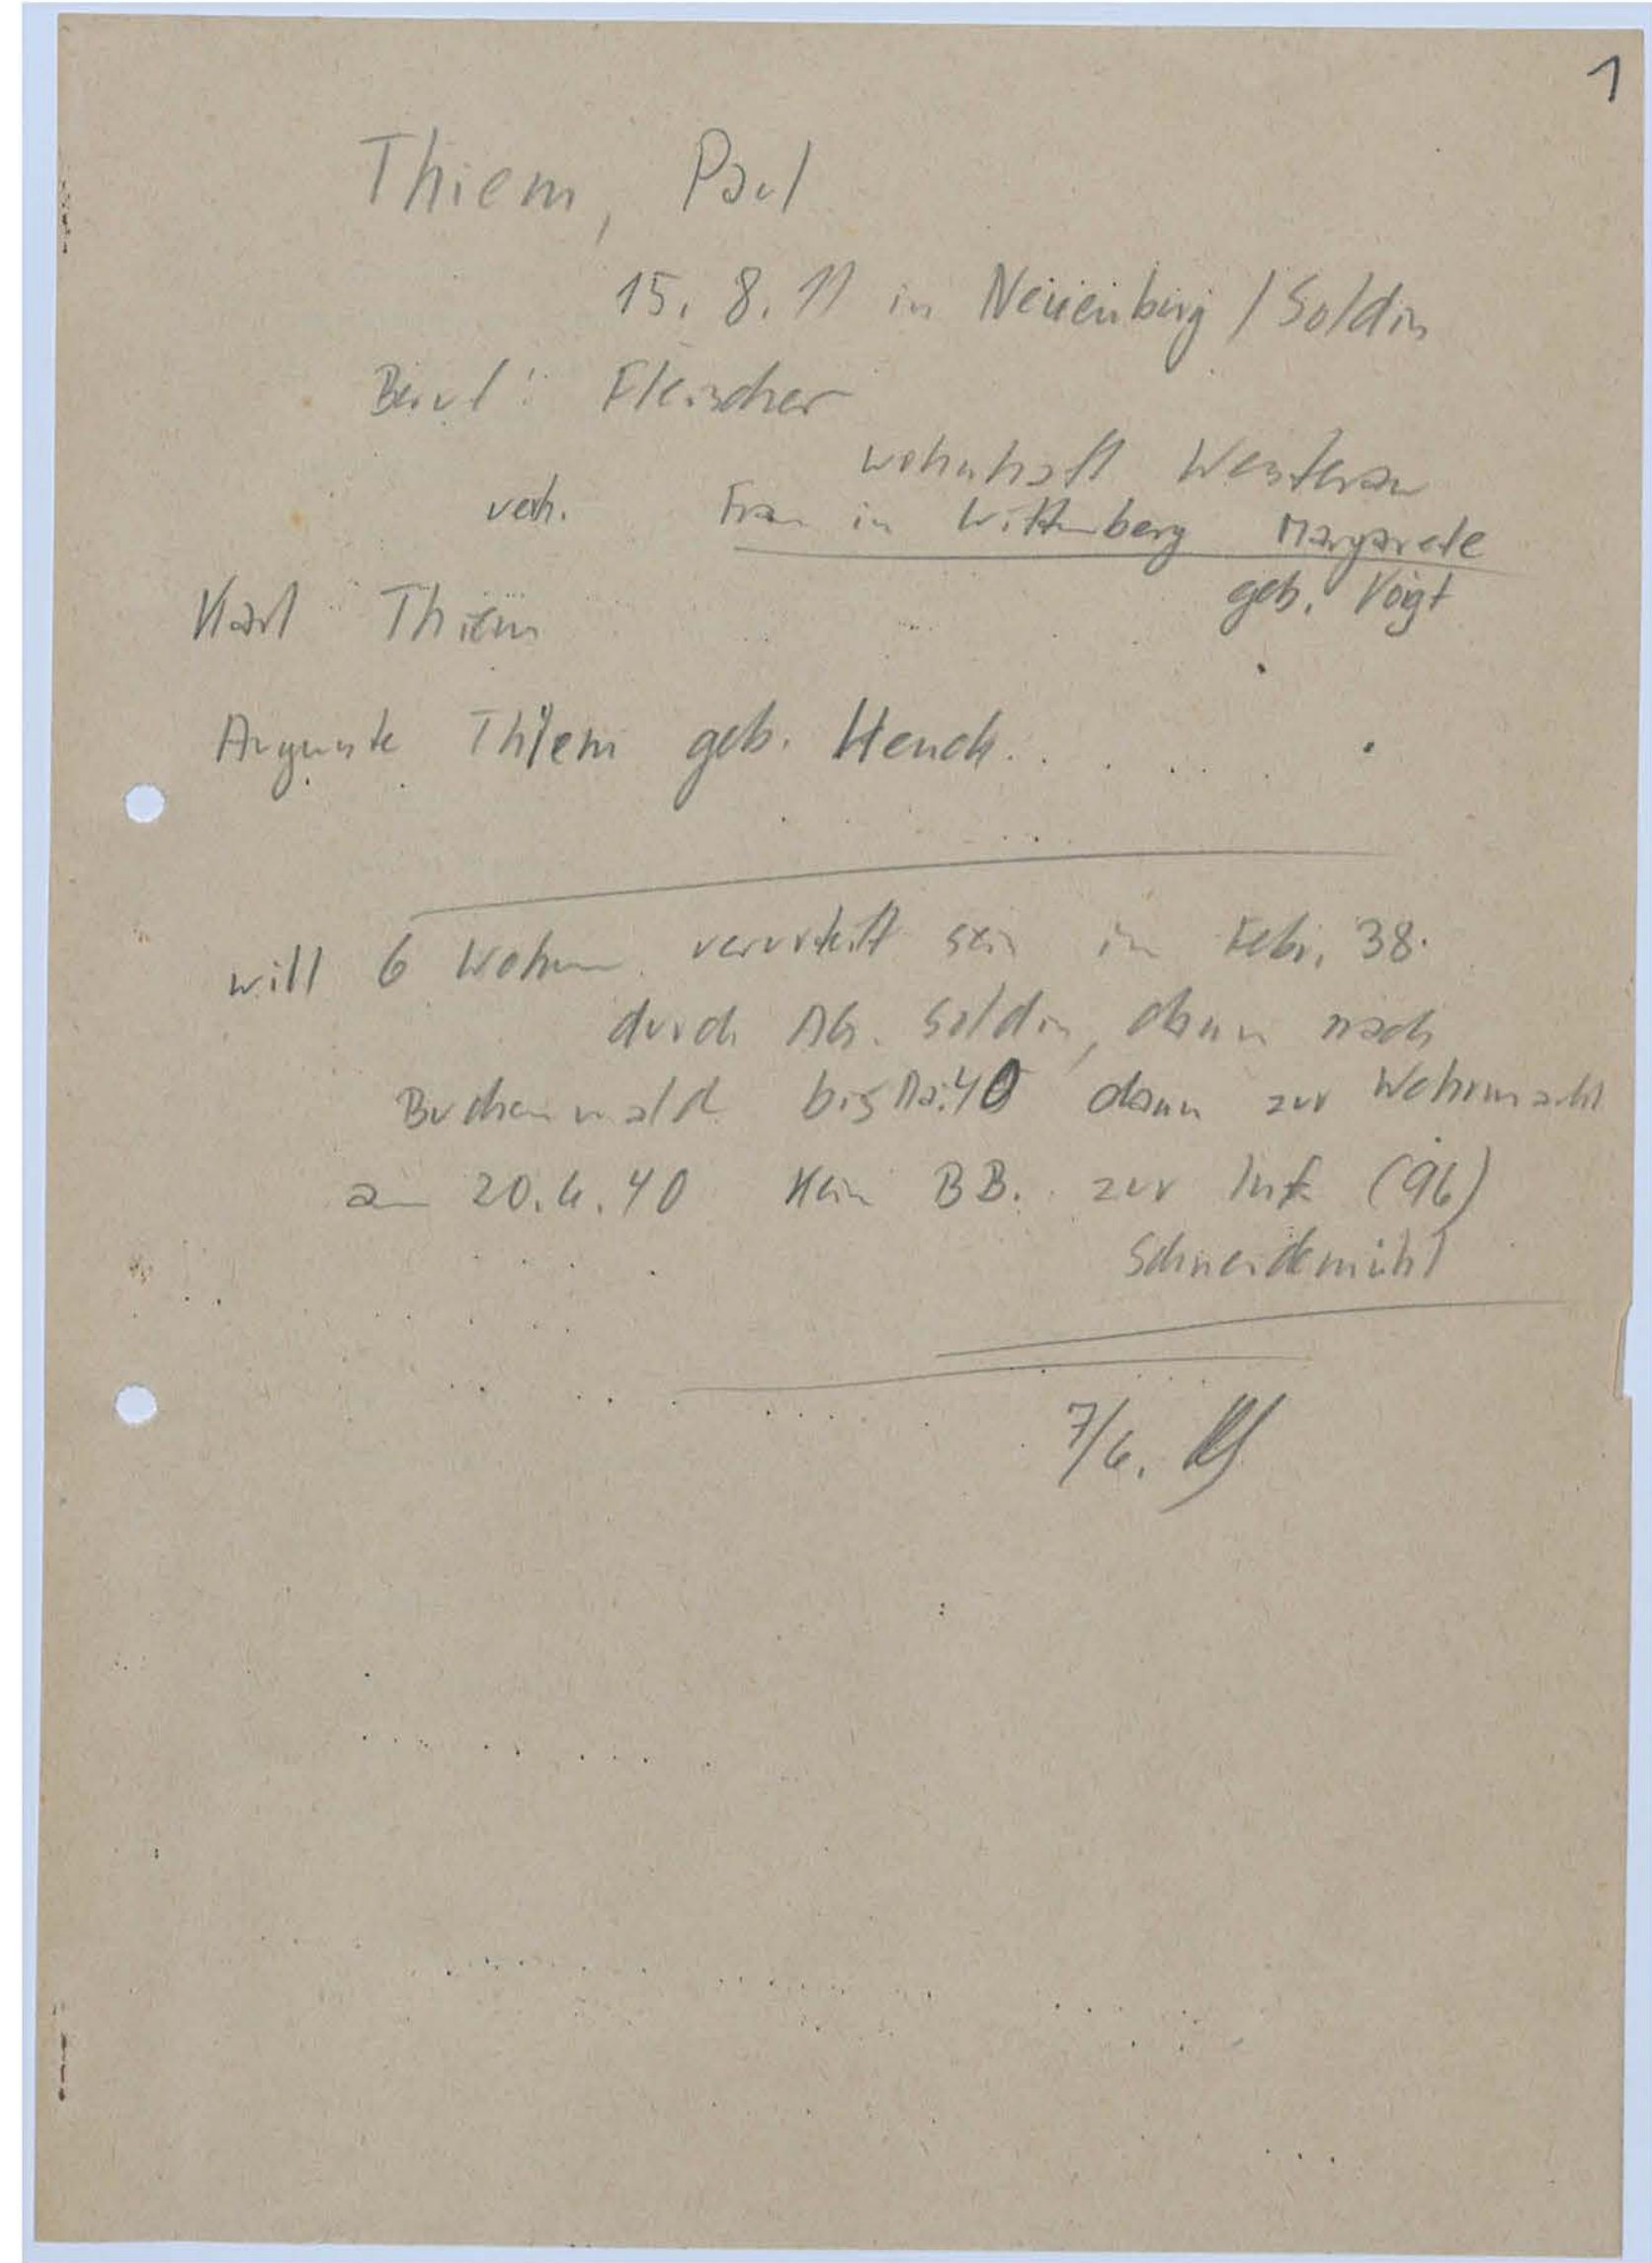 1
Thiem, Paul
15. 8. 11 in Neuenburg / Soldin
Beruf: Fleischer
wohnhaft Westerau
verh. Frau in Wittenberg Margarete
geb. Voigt
Karl Thiem
Auguste Thiem geb. Henck
will 6 Wochen verurteilt sein im Febr. 38.
durch AG. Soldin, dann nach
Buchenwald bis 40 dann zur Wehrmacht
am 20.6.40 Kein BB. zur Inf. (96)
Schneidemühl
7/6.